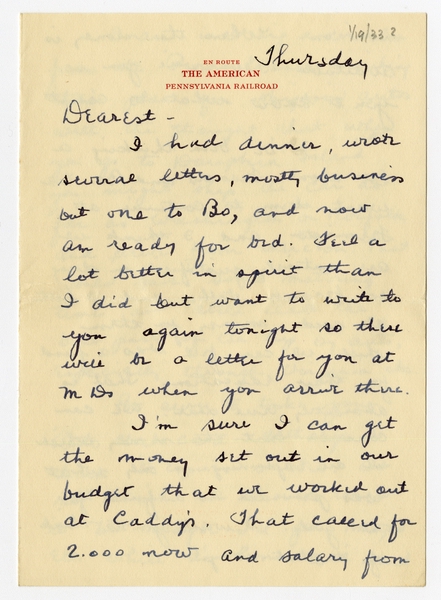 1/19/33?
EN ROUTE
Thursday
THE AMERICAN
PENNSYLVANIA RAILROAD
Dearest -
I had dinner, wrote
several letters, mostly business
but one to Bo, and now
am ready for bed. Feel a
lot better in spirit than
I did but want to write to
you again tonight so there
will be a letter for you at
M Ds when you arrive there.
I'm sure I can get
the money set out in our
budget that we worked out
at Caddy's. That called for
2.000 now and salary from